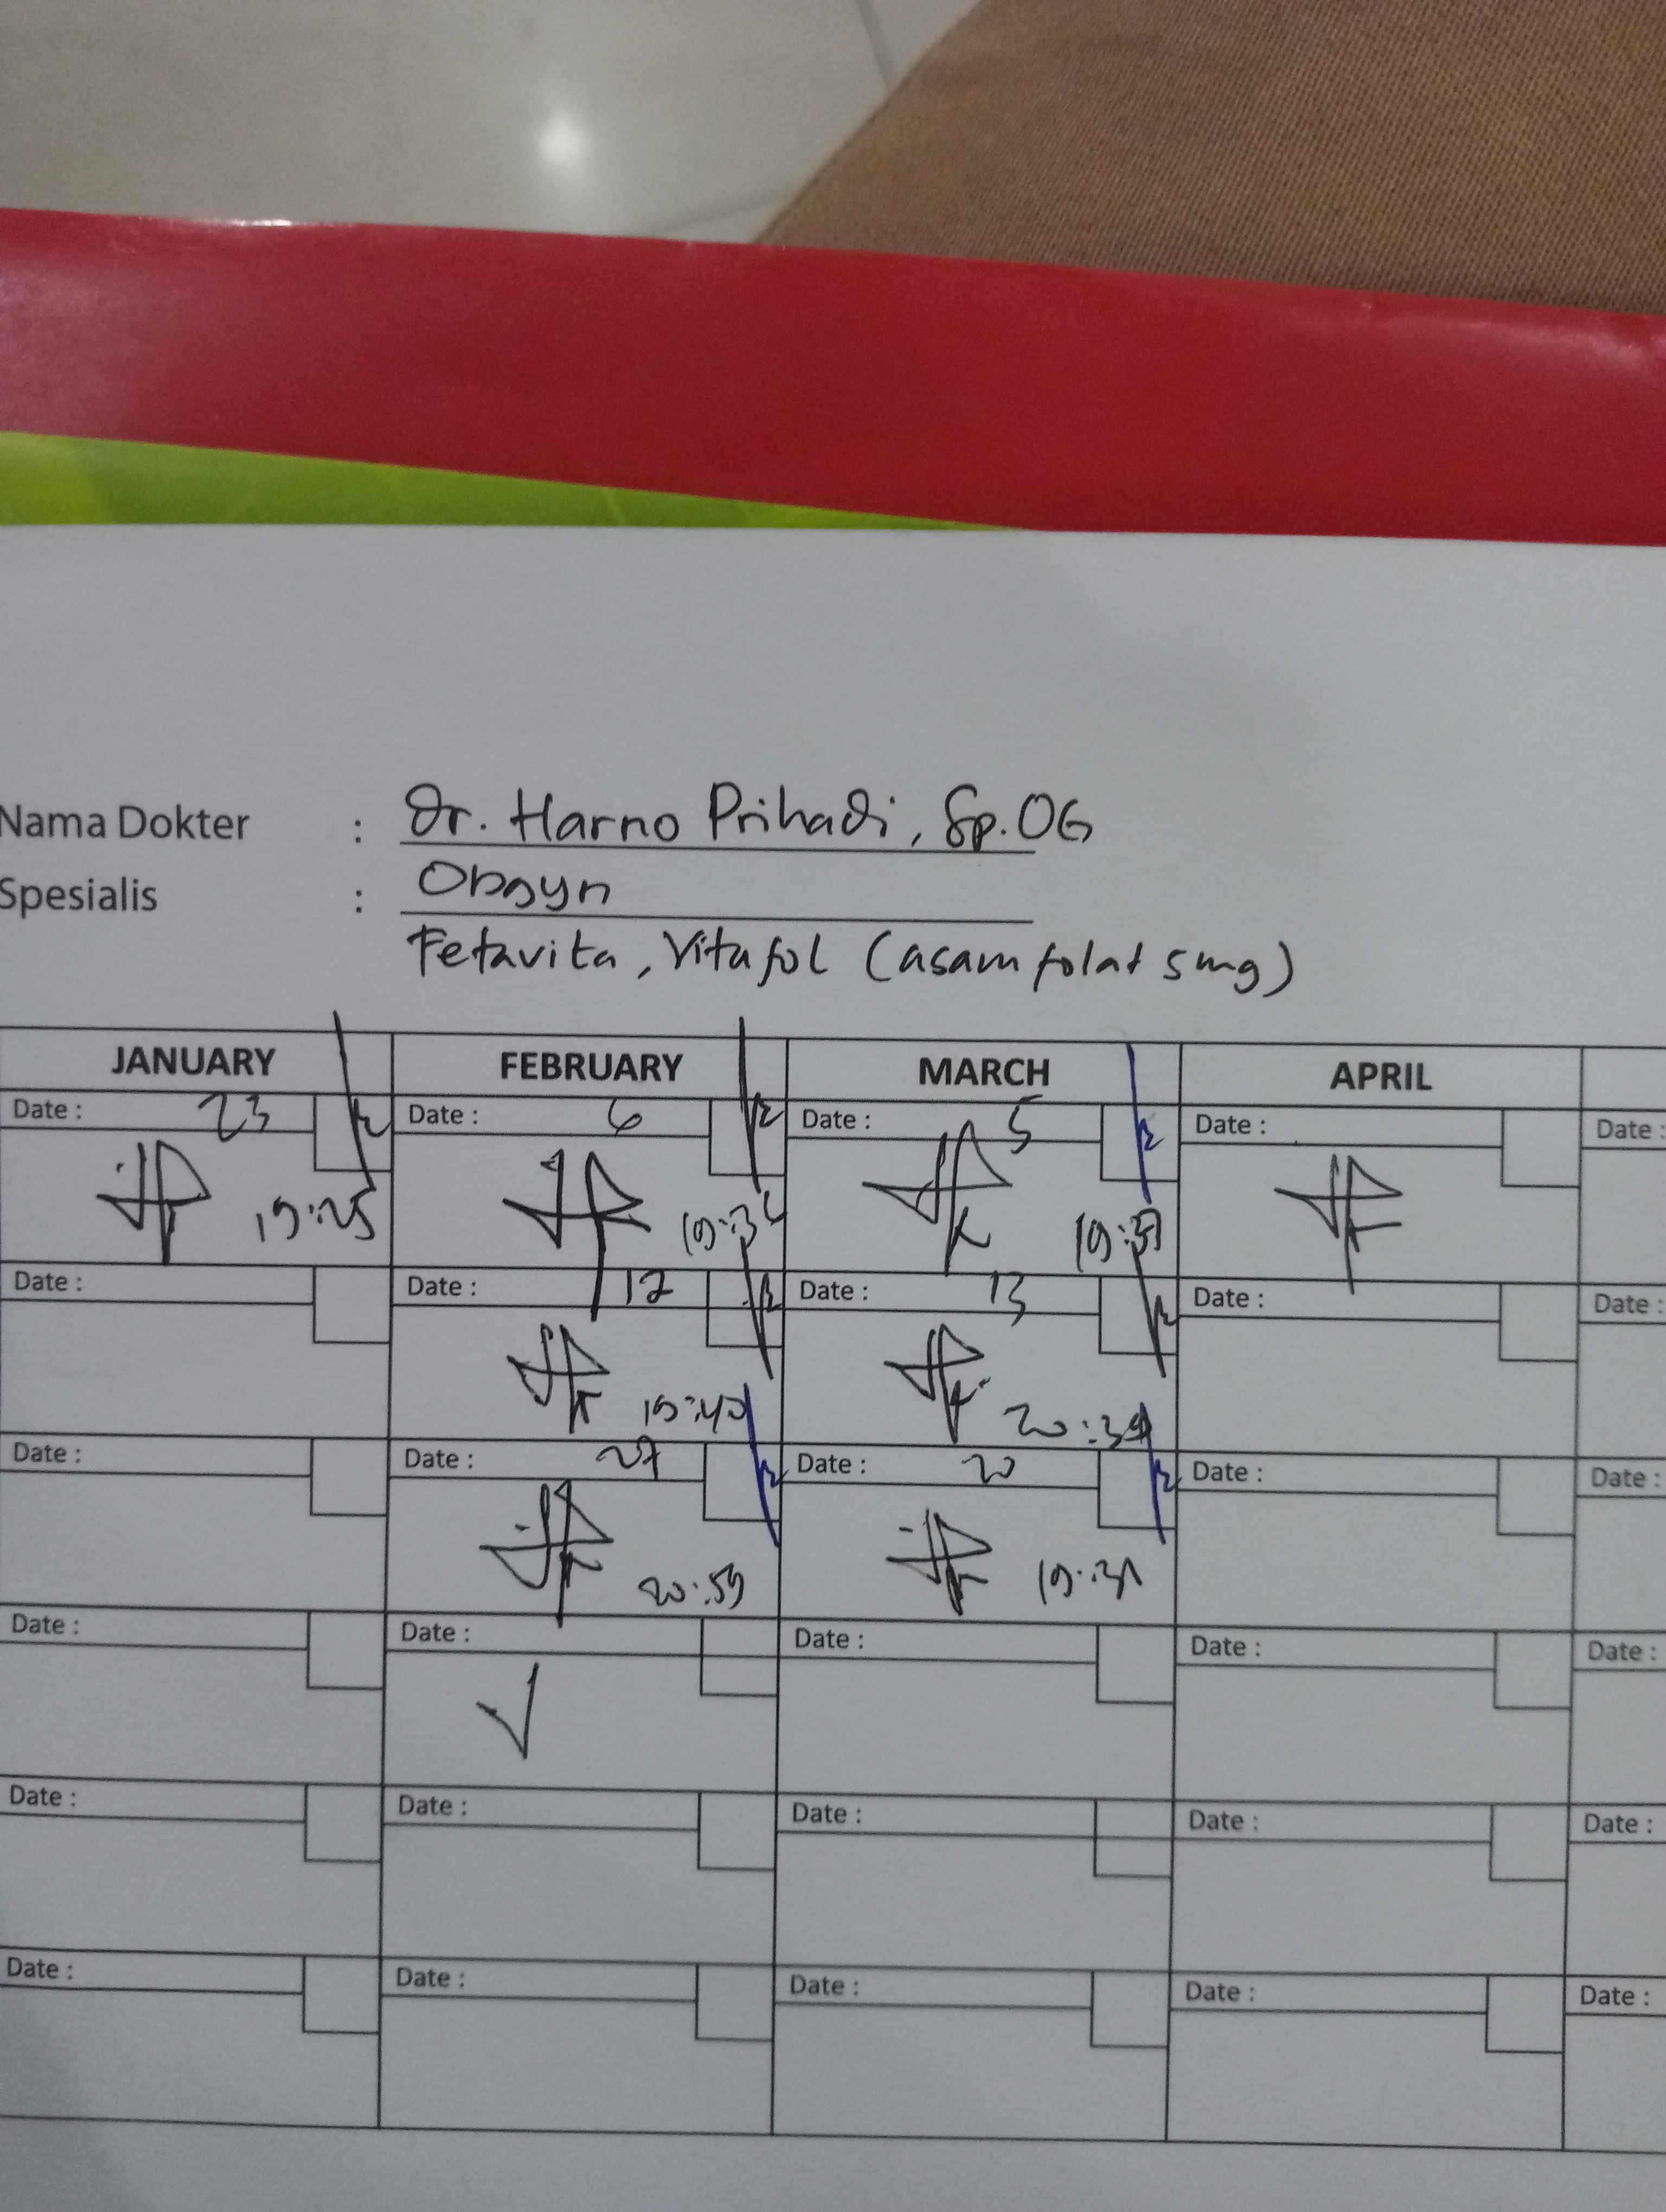 Nama Dokter : Dr. Harno Prihadi, Sp.OG
Spesialis : Obgyn
Fetavita, Vitafol (asam folat 5 mg)
JANUARY FEBRUARY MARCH APRIL
Date : 23 Date : 6 Date : 5 Date : Date :
19:25 19:3 19:37
Date : Date : 12 Date : 13 Date : Date :
19:40 20:39
Date : Date : 27 Date : 20 Date : Date :
20:59 19:31
Date : Date : Date : Date : Date :
Date : Date : Date : Date : Date :
Date : Date : Date : Date : Date :